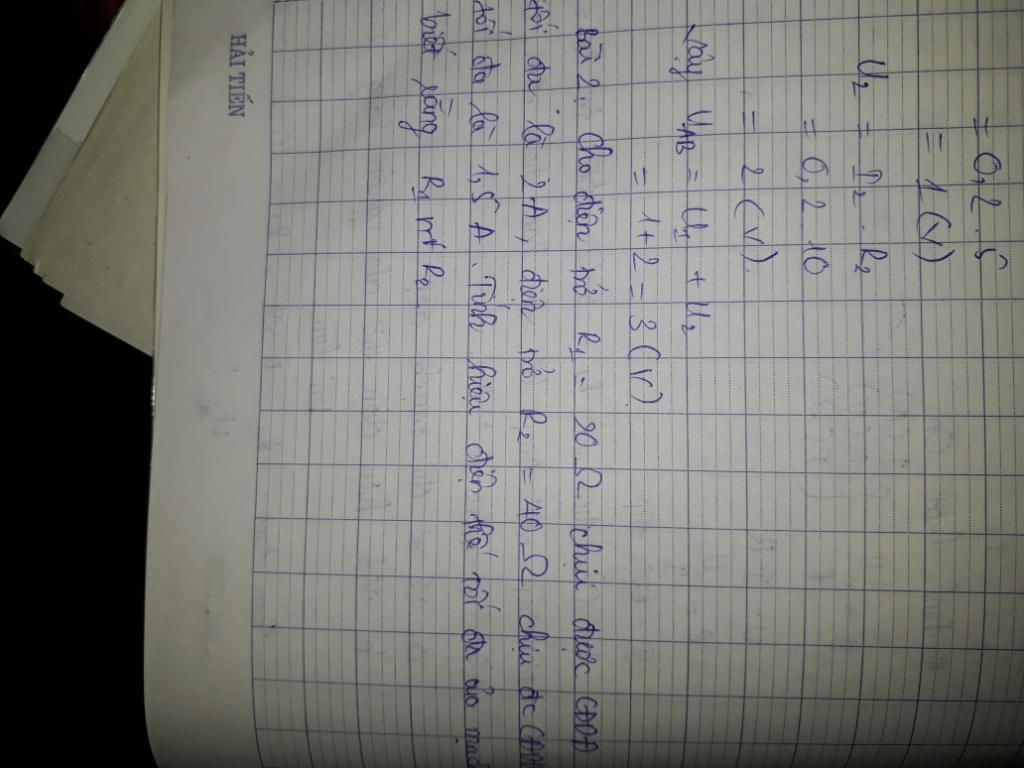 = 0,2 . 5
= 1 (V)
U2 = I2 . R2
= 0,2 . 10
= 2 (V).
Vậy UAB = U1 + U2
= 1 + 2 = 3 (V)
bài 2: cho điện trở R1 = 20 Ω chịu được CĐDĐ
tối đa là 2 A, điện trở R2 = 40 Ω chịu đc CĐDĐ
tối đa là 1,5 A. Tính hiệu điện thế tối đa của mạch
biết rằng R1 nt R2
HẢI TIẾN